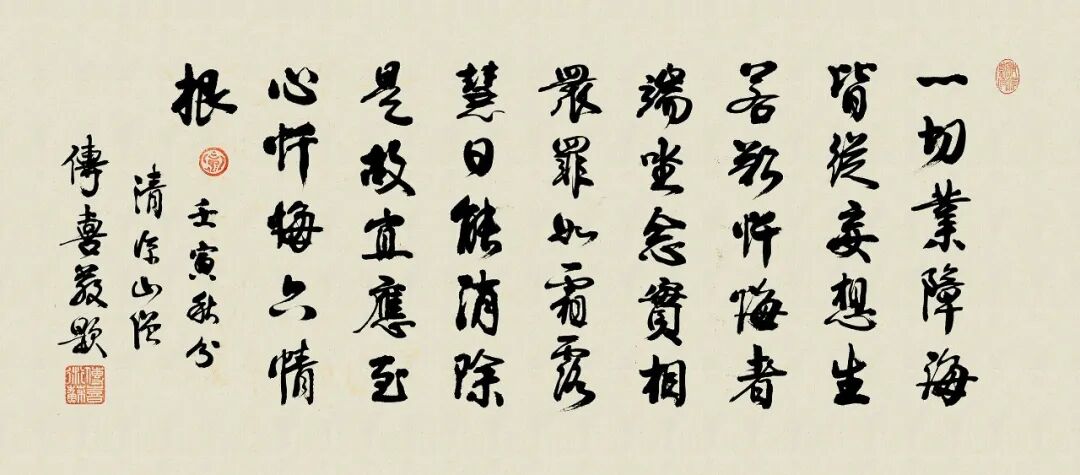 一切業障海
皆從妄想生
若欲忏悔者
端坐念實相
眾罪如霜露
慧日能消除
是故宜應至
心忏悔六情
根
壬寅秋分
清凉山僧
傳喜敬題